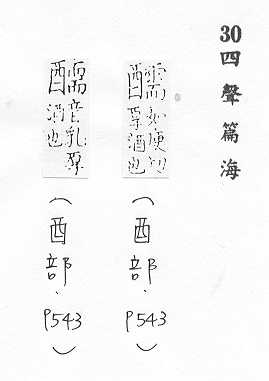 30四聲篇海
醹如庾切
厚酒也
(酉部.P543)
醹音乳厚
酒也
(酉部.P543)